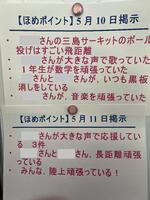 【ほめポイント】5月10日掲示
さんの三島サーキットのボール
投げはすごい飛距離
さんが大きな声で歌っていた
1年生が数学を頑張っていた
さんと さんが、いつも黒板
消しをしている
さんが、音楽を頑張っていた
【ほめポイント】5月11日掲示
さんが大きな声で応援してい
る 3件
さんと さん、長距離頑張っ
ている
・みんな、陸上頑張っている！